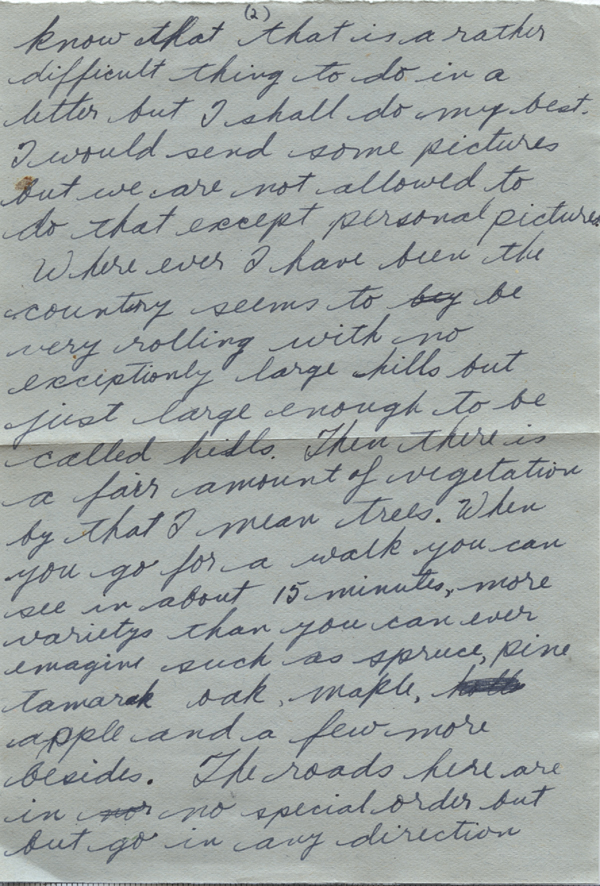 (2)
know that that is a rather
difficult thing to do in a
letter but I shall do my best.
I would send some pictures
but we are not allowed to
do that except personal pictures
Where ever I have been the
country seems to by be
very rolling with no
exciptionly large hills but
just large enough to be
called hills. Then there is
a fair amount of vegetation
by that I mean trees. When
you go for a walk you can
see in about 15 minutes, more
varietys than you can ever
emagine such as spruce, pine
tamarak oak, maple,
apple and a few more
besides. The roads here are
in nor no special order but
but go in any direction